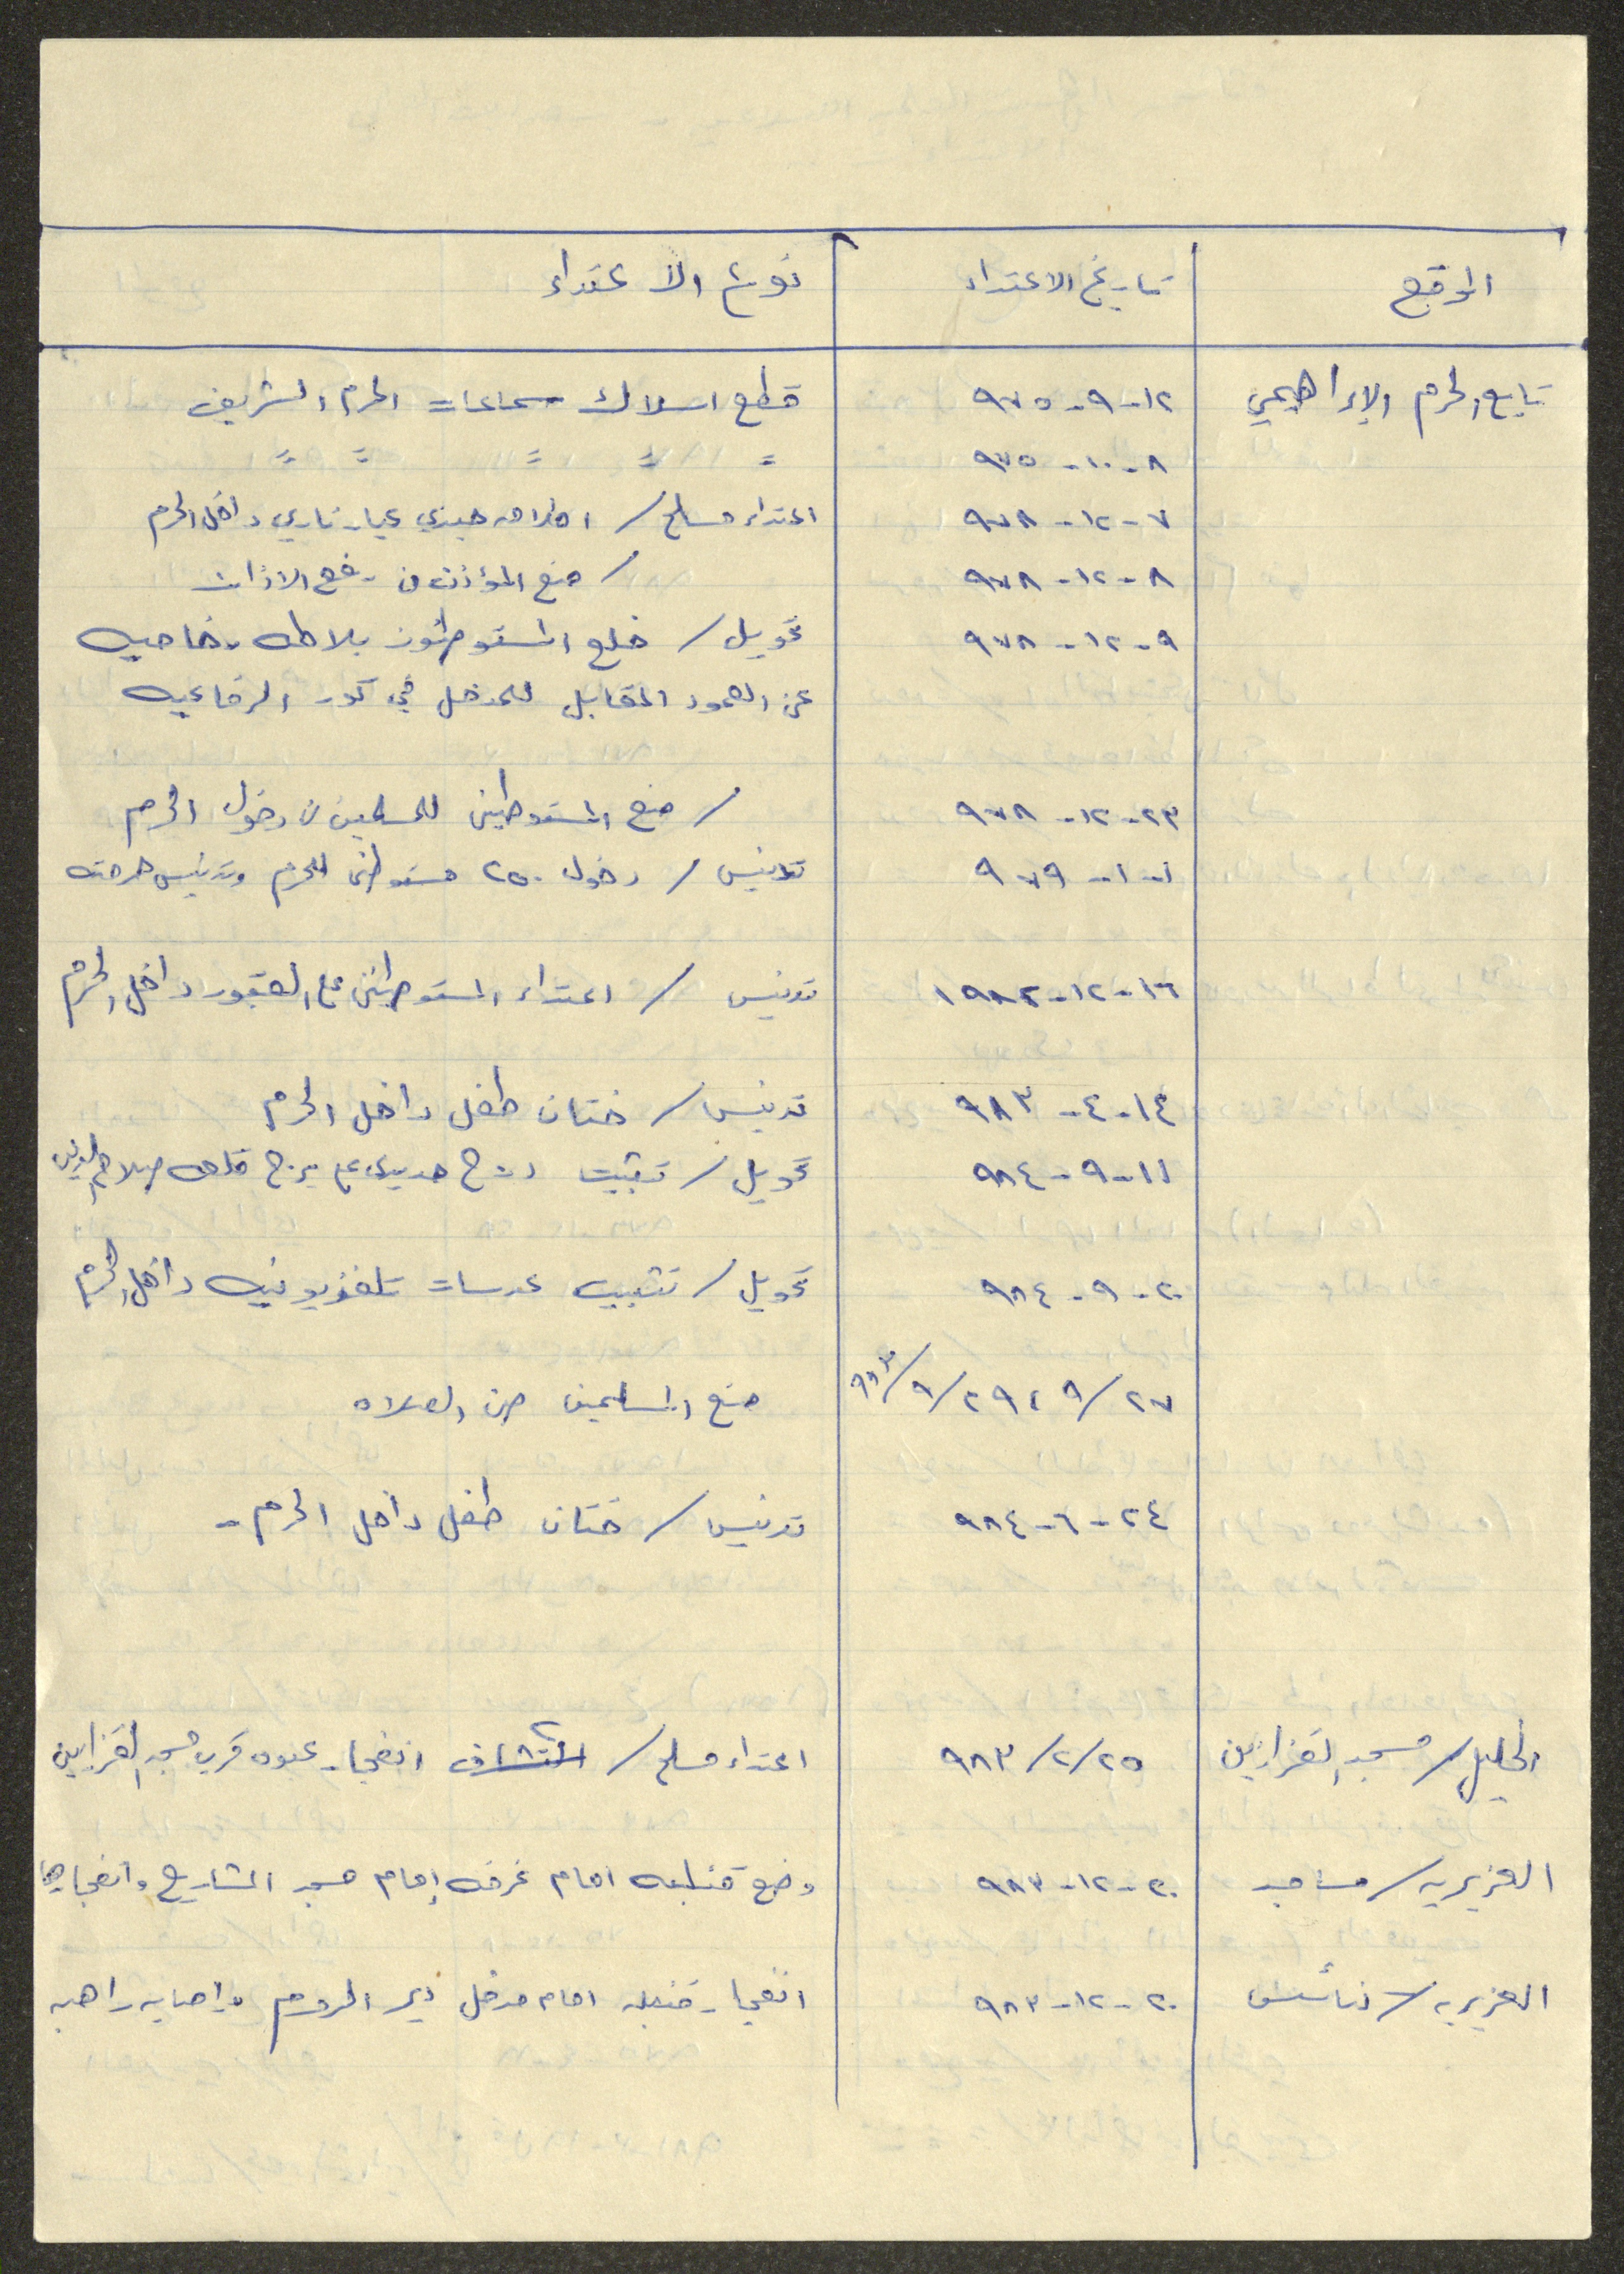 الموقع تاريخ الاعتداء نوع الاعتداء
تابع الحرم الإبراهيمي ١٢-٩-٩٧٥ قطع اسلاك سماعات الحرم الشريف
٨-١٠-٩٧٥ = = = = =
٧-١٢-٩٧٨ اعتداء مسلح / اطلاق جندي عيار ناري داخل الحرم
٨-١٢-٩٧٨ / منع المؤذن من رفع الاذان
٩-١٢-٩٧٨ تحويل / خلع المستوطنون بلاطه رخاميه
عن العمود المقابل للمدخل في كور الرفاعيه
٢٣-١٢-٩٧٨ / منع المستوطنين للمسلمين من دخول الحرم
١-١-٩٧٩ تدنيس / دخول ٢٥٠ مستوطن للحرم وتدنيس حرمته
١٦-١٢-١٩٨٢ تدنيس / اعتداء المستوطنين على القبور داخل الحرم
١٤-٤-٩٨٣ تدنيس / ختان طفل داخل الحرم
١١-٩-٩٨٤ تحويل / تثبيت درج حديدي على برج قلعه صلاح الدين
٢٠-٩-٩٨٤ تحويل / تثبيت عدسات تلفزيونيه داخل الحرم
٢٧/٩، ٢٩/٩/٩٨٣ منع المسلمين من الصلاه
٢٤-٦-٩٨٤ تدنيس / ختان طفل داخل الحرم -
الخليل / مسجد القزازين ٢٥/٢/٩٨٣ اعتداء مسلح / انفجار عبوه قرب مسجد القزازين
العزيريه / مساجد ٢٠-١٢-٩٨٣ وضع قنبله امام غرفه إمام مسجد المشاريع وانفجارها
العزيريه / كنائس ٢٠-١٢-٩٨٣ انفجار قنبله امام مدخل دير الروم واصابه راهبه